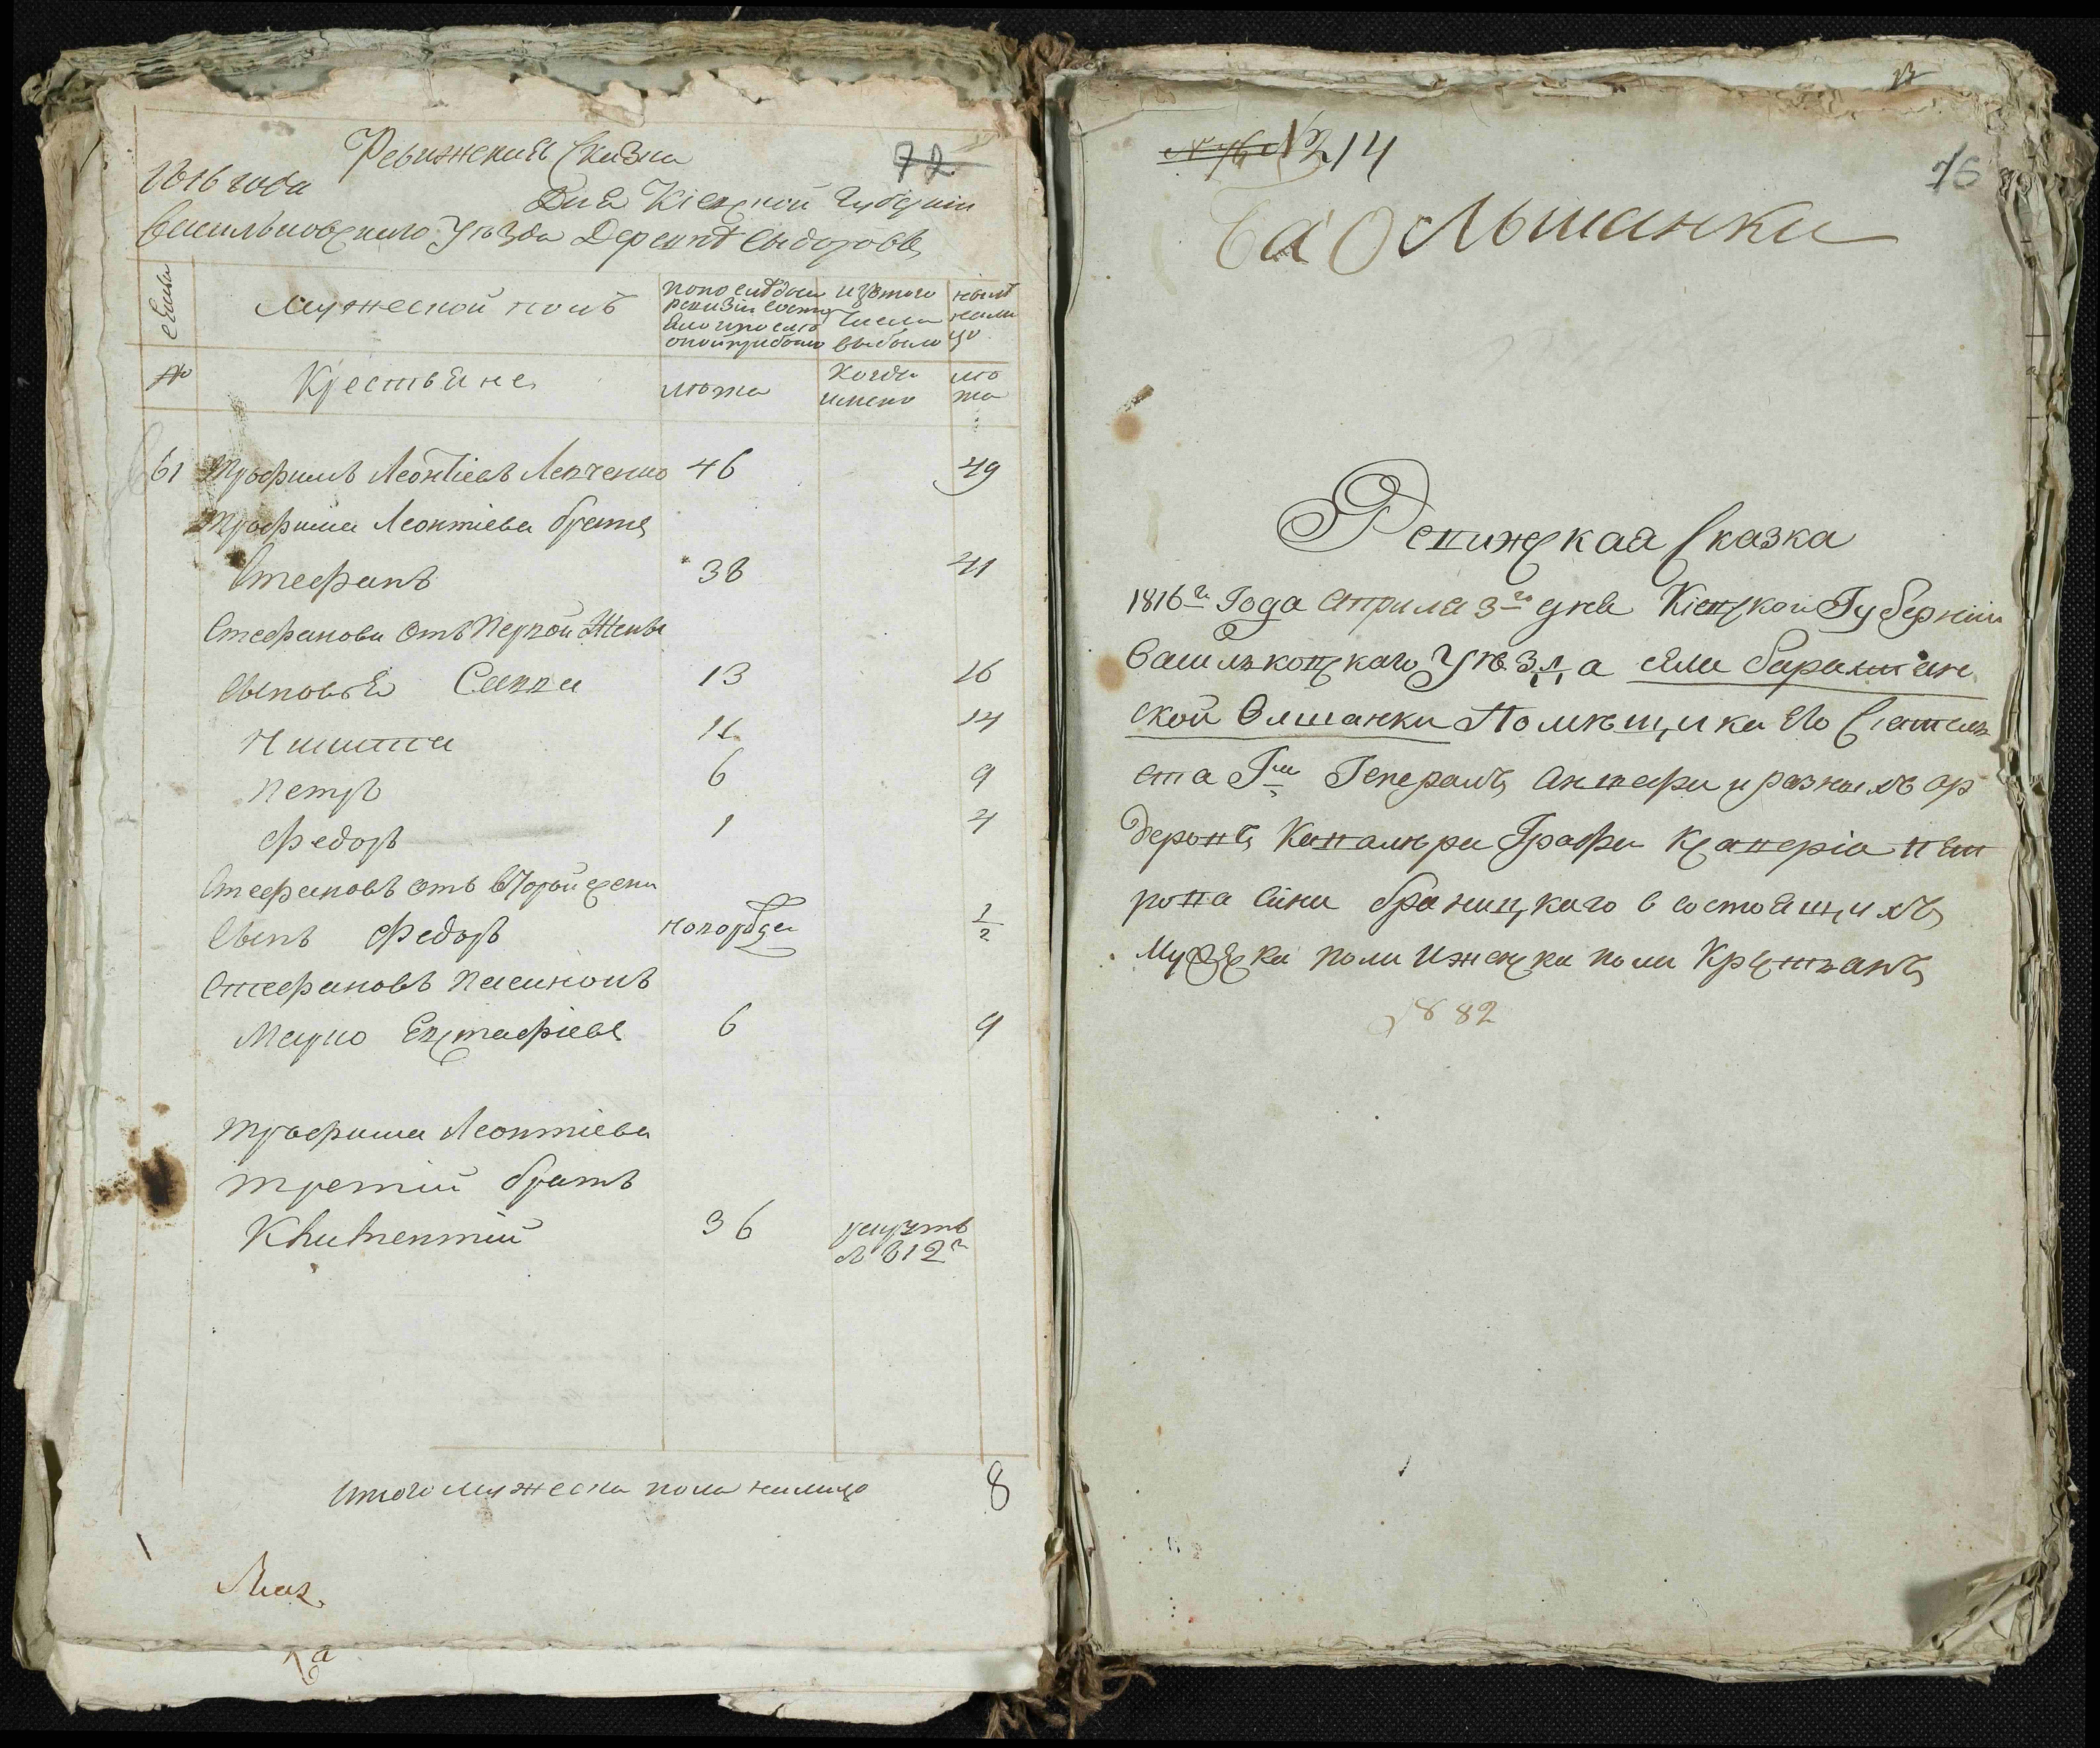 Ревижская Сказка
72
1816 года
Дня Кіевской Губерніи
Васильковскаго Уѣзда Деревнѣ Сыдоровъ
семьи
Мужеской полъ
попослѣдней ревизіи состояло и после оной прибыло
изътого числа выбыло
нынѣ налицо
№
Крестьяне
лѣта
Когда имено
лѣта
61 Трофимъ Леонтіевъ Левченко 46 49
Трофима Леонтіева братъ
Стефанъ 38 41
Стефанови отъ Первой Жены
сыновья Савва 13 16
Никита 11 14
Петръ 6 9
Федоръ 1 4
Стефановъ отъ вторай жени
Сынъ Федоръ новоржден 1/2
Стефановъ Пасинокъ
Марко Евстафіевъ 6 9
Трофима Леонтіева
третій братъ
Климентій 36 рекрутъ
в 812г
Итого мужеска пола налицо 8
№ 214
76
Ба Ольшанки
Ревижская Сказка
1816го Года априля 3го дня Кіевской Губерніи
Васильковскаго Уѣзда села Барахтян
ской Олшанки Помѣщика Его Сіятель
ства Гна Генералъ Аншефа и разныхъ ор
деровъ Кавалѣра Графа Ксаверія Пет
рова сина Браницкаго в состоящихъ
Мужеска пола и женска пола Крестьянъ
882